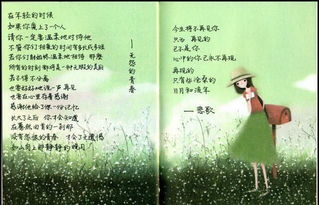 在年轻的时候
如果你爱上了一个人
请你一定要温柔地对待他
不管你们相爱的时间有多长或多短
若你们能始终温柔地相待 那么
所有的时刻都将是一种无瑕的美丽
若不得不分离
也要好好地说一声再见
也要在心里存着感谢
感谢他给了你一份记忆
长大了之后 你才会知道
在蓦然回首的一刹那
没有怨恨的青春 才会了无遗憾
如山岗上那静静的晚月
——无怨的青春
今生将不再见你
只为 再见的
已不是你
心中的你已永不再现
再现的
只有些沧桑的
日月和流年
——悲歌